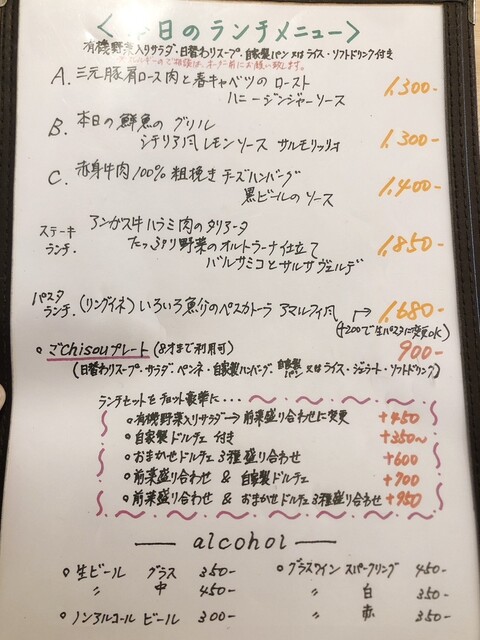 ＜ 本日のランチメニュー ＞
有機野菜入りサラダ・日替わりスープ・自家製パン 又は ライス・ソフトドリンク付き
アレルギーのご相談は、オーダー前にお願い致します。
A. 三元豚肩ロース肉と春キャベツの ロースト
ハニージンジャーソース 1,300-
B. 本日の鮮魚の グリル
シチリア風 レモンソース サルモリッリオ 1,300-
C. 赤身牛肉100% 粗挽き チーズハンバーグ
黒ビールの ソース 1,400-
ステーキ アンガス牛ハラミ肉のタリアータ
ランチ. たっぷり野菜のオルトラーナ仕立て 1,850-
バルサミコとサルサヴェルデ
パスタ
ランチ. (リングイネ) いろいろ魚介のペスカトーラ アマルフィ風 1,680-
(+200で生パスタに変更OK)
○ ごchisouプレート (8才まで利用可) 900-
(日替わりスープ・サラダ・ペンネ・自家製ハンバーグ・自家製パン 又は ライス・ジェラート・ソフトドリンク)
ランチセットをチョット豪華に・・
○有機野菜入りサラダ→ 前菜盛り合わせに変更 +450
○自家製ドルチェ 付き +350〜
○おまかせドルチェ 3種盛り合わせ +600
○前菜盛り合わせ & 自家製ドルチェ +700
○前菜盛り合わせ & おまかせドルチェ3種盛り合わせ +950
— alcohol —
○生ビール グラス 350-
〃 中 450-
○ノンアルコール ビール 300-
○グラスワイン スパークリング 450-
〃 白 350-
〃 赤 350-